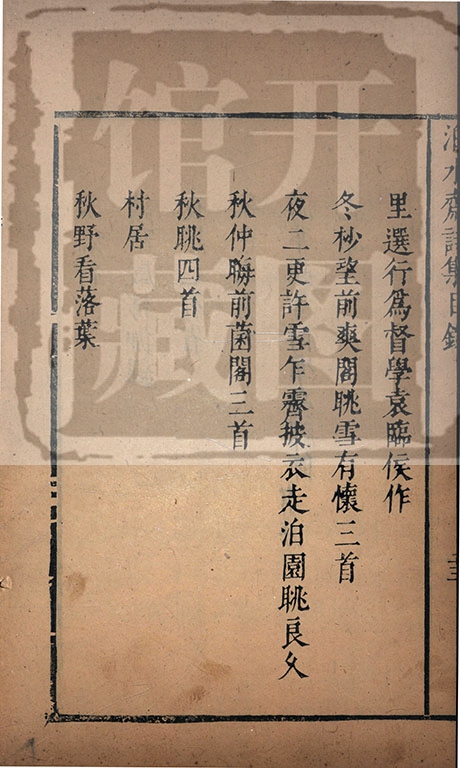 泊水齋詩集目錄
里選行爲督學袁臨侯作
冬杪望前爽閣眺雪有懷三首
夜二更許雪乍霽披衣走泊園眺良久
秋仲晦前菌閣三首
秋眺四首
村居
秋野看落葉
开图馆藏